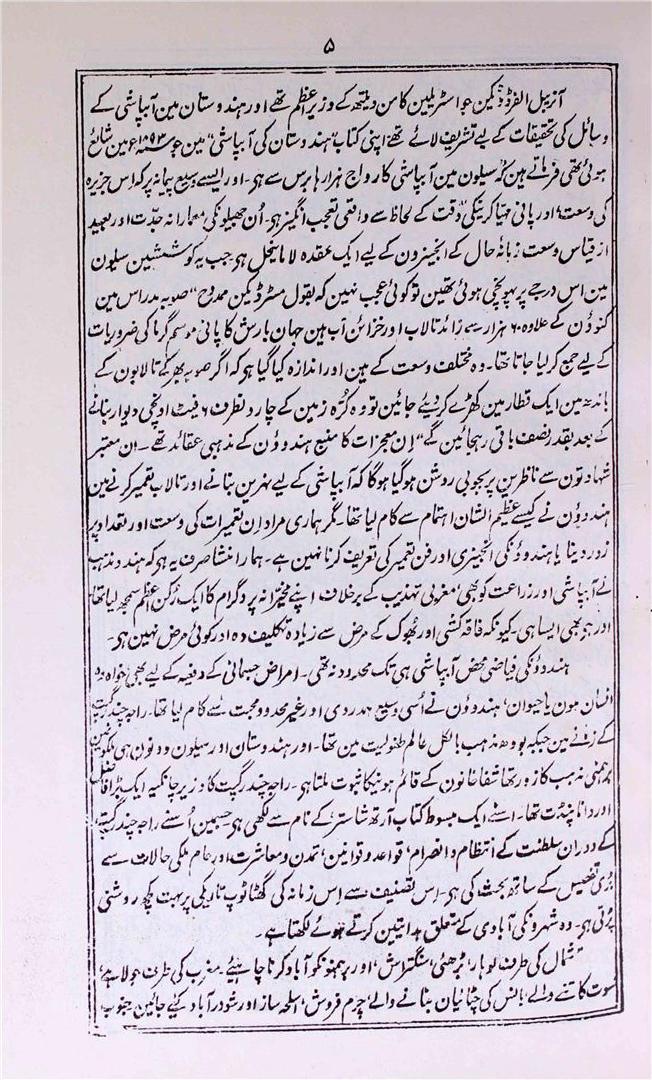 ۵
آنریبل الفرڈ ڈیکین جو اسٹریلین کامن ویلتھ کے وزیر اعظم تھے اور ہندوستان مین آبپاشی کے
وسائل کی تحقیقات کے لیے تشریف لائے تھے اپنی کتاب "ہندوستان کی آبپاشی" مین جو سنہ ۱۸۹۳ء مین شائع
ہوئی تھی فرماتے ہین کہ سیلون مین آبپاشی کا رواج ہزارہا برس سے ہی۔ اور ایسے وسیع پیمانہ پر کہ اس جزیرہ
کی وسعت، اور پانی مہیا کرنیکی دقت کے لحاظ سے واقعی تعجب انگیز ہی۔ اُن جھیلونکی معمارانہ جدّت اور بعید
از قیاس وسعت زمانہ حال کے انجینرون کے لیے ایک عقدہ لا ینحل ہی جب یہ کوششین سیلون
مین اس درجے پر پہونچی ہوئی تھین تو کوئی عجب نہین کہ بقول مسٹر ڈیکین ممدوح "صوبہ مدراس مین
کنوؤن کے علاوہ ۶۰ ہزار سے زائد تالاب اور خزائن آب ہین جہان بارش کا پانی موسم گرما کی ضروریات
کے لیے جمع کر لیا جاتا تھا۔ وہ مختلف وسعت کے ہین اور اندازہ کیا گیا ہی کہ اگر صوبہ بھر کے تالابون کے
باندھ مین ایک قطار مین کھڑے کر دیئے جائین تو وہ کرۂ زمین کے چار و نطرف ۶ فیٹ اونچی دیوار بنانے
کے بعد بقدر نصف باقی رہجائین گے" اِن معجزات کا منبع ہندوؤن کے مذہبی عقائد تھے۔ ان معتبر
شہادتون سے ناظرین پر بخوبی روشن ہو گیا ہوگا کہ آبپاشی کے لیے نہرین بنانے اور تالاب تعمیر کرنے مین
ہندوؤن نے کیسے عظیم الشان اہتمام سے کام لیا تھا۔ مگر ہماری مراد اِن تعمیرات کی وسعت اور تعداد پر
زور دینا یا ہندوؤنکی انجینری اور فن تعمیر کی تعریف کرنا نہین ہے۔ ہمارا منشا صرف یہ ہی کہ ہندو مذہب
نے آبپاشی اور زراعت کو بھی، مغربی تہذیب کے برخلاف اپنے مخیّرانہ پروگرام کا ایک رکن اعظم سمجھ لیا تھا
اور ہی بھی ایسا ہی۔ کیونکہ فاقہ کشی اور بھوک کے مرض سے زیادہ تکلیف دہ اور کوئی مرض نہین ہی۔
ہندوؤنکی فیاضی محض آبپاشی ہی تک محدود نہ تھی۔ امراض جسمانی کے دفعیہ کے لیے بھی خواہ وہ
انسان ہون یا حیوان، ہندوؤن نے اُسی وسیع ہمدردی اور غیر محدود محبت سے کام لیا تھا۔ راجہ چندر گپت
کے زمانے مین جبکہ بودھ مذہب بالکل عالم طفولیت مین تھا۔ اور ہندوستان اور سیلون دونون ہی ملکون مین
برہمنی مذہب کا زور تھا شفاخانون کے قائم ہونیکا ثبوت ملتا ہی۔ راجہ چندر گپت کا وزیر چانکیہ ایک بڑا فاضل
اور دانا پنڈت تھا۔ اسنے ایک مبسوط کتاب آرتھ شاستر، کے نام سے لکھی ہی۔ جسمین اُسنے راجہ چندر گپت،
کے دوران سلطنت کے انتظام و انصرام، قواعد و قوانین، تمدن و معاشرت اور عام ملکی حالات سے
بڑی تفحیص کے ساتھ بحث کی ہی۔ اس تصنیف سے اِس زمانہ کی گھٹا ٹوپ تاریکی پر بہت کچھ روشنی
پڑتی ہی۔ وہ شہرونکی آبادی کے متعلق ہدایتین کرتے ہوئے لکھتا ہے۔
شمال کی طرف لوہار، بڑھئی، سنگتراش، اور برہمنونکو آباد کرنا چاہیئے۔ مغرب کی طرف جولاہے،
سوت کاتنے والے، بانس کی چٹائیان بنانے والے، چرم فروش، اسلحہ ساز اور شودر آباد کیے جائین جنوب